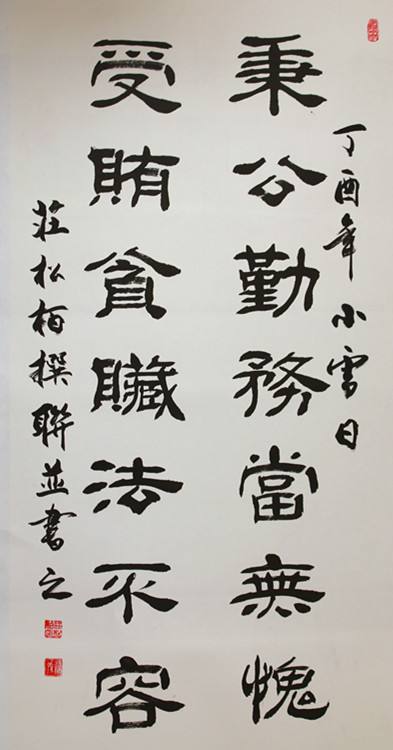 丁酉年小雪日
秉公勤務當無愧
受賄貪贓法不容
莊松柏撰聯並書之